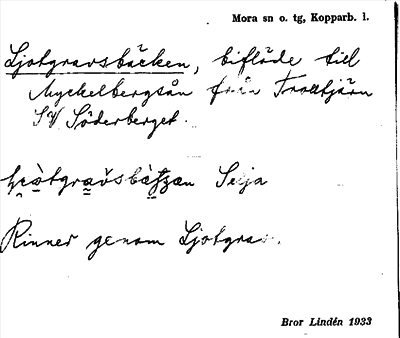 Mora sn o. tg, Kopparb. l.
Ljotgravsbäcken, biflöde till
Myckelbergsån från Trottjärn
SV Söderberget.
Selja
Rinner genom Ljotgrav.
Bror Lindén 1933